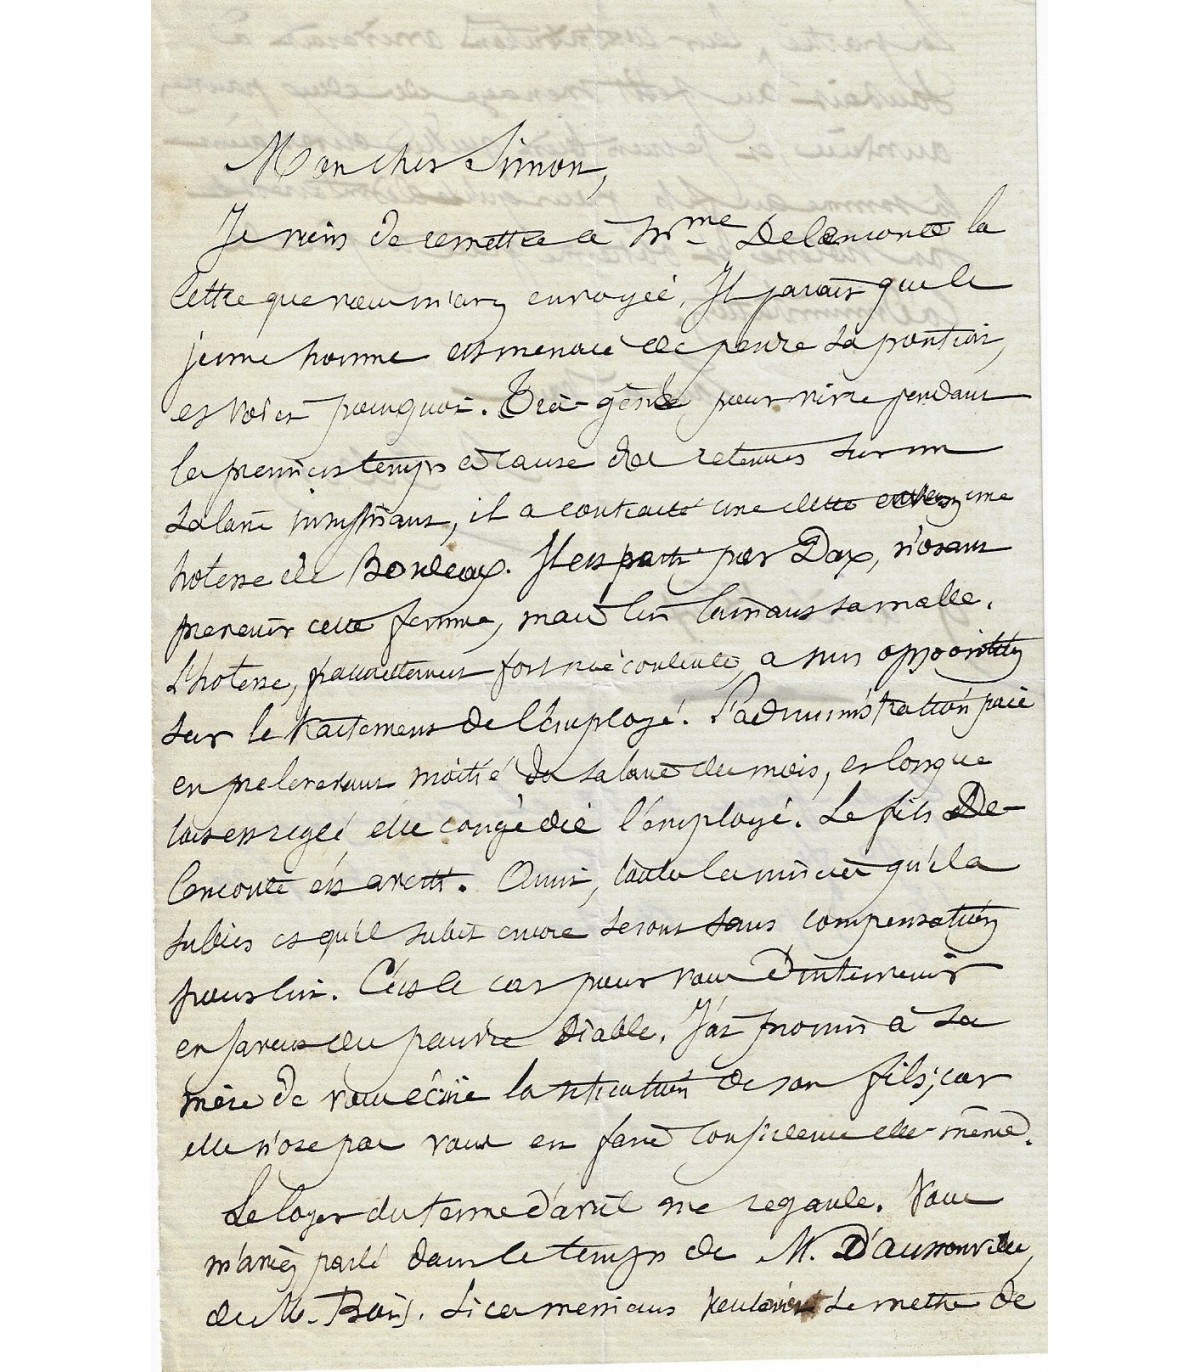 Mon cher Simon,
Je viens de remettre à Mme Delenconte la
lettre que vous m'avez envoyée. Il parait que le
jeune homme est menacé de perdre sa position,
et voici pourquoi. Très-gêné pour vivre pendant
les premiers temps à cause des retenues sur un
salaire insuffisant, il a contracté une dette envers une
hotesse de Bordeaux. Il est parti pour Dax, n'osant
prevenir cette femme, mais lui laissant sa malle.
L'hotesse, parfaitement fort mécontente, a mis opposition
sur le traitement de l'employé. L'administration paie
en prelevant moitié du salaire du mois, et lorsque
tout est reglé elle congédie l'employé. Le fils De-
lenconte est averti. Ainsi, toutes les misères qu'il a
subies et qu'il subit encore seront sans compensation
pour lui. C'est le cas pour vous d'intervenir
en faveur du pauvre diable. J'ai promis à sa
mère de vous écrire la situation de son fils; car
elle n'ose pas vous en faire confidence elle-même.
Le loyer du terme d'avril me regarde. Vous
m'aviez parlé dans le temps de M. D'aussonville,
de M. Bois. Si ces messieurs veulent se mettre de